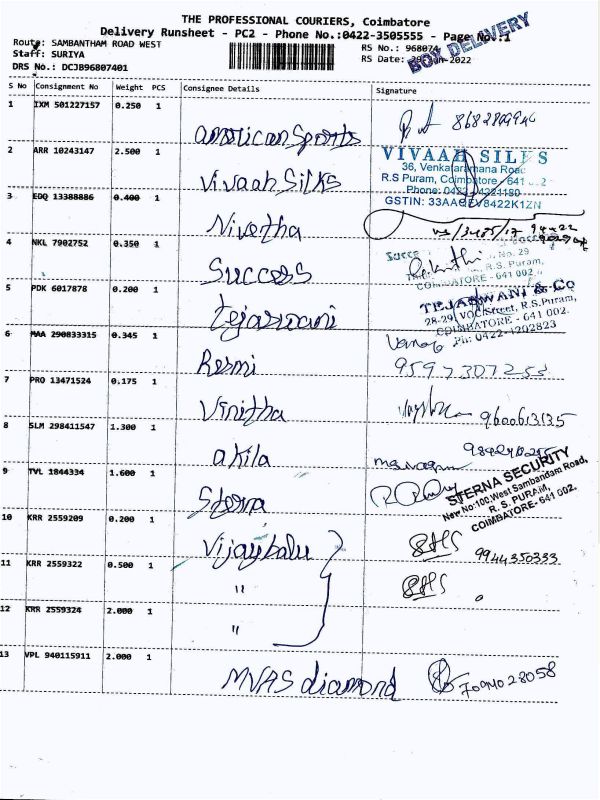 THE PROFESSIONAL COURIERS, Coimbatore
Delivery Runsheet - PC2 - Phone No.:0422-3505555 - Page No.:1
Route: SAMBANTHAM ROAD WEST
RS No.: 968074
BOX DELIVERY
Staff: SURIYA
RS Date: -Jun-2022
DRS No.: DCJB96807401
S No Consignment No Weight PCS Consignee Details Signature
1 IXM 501227157 0.250 1
American Sports
2 ARR 10243147 2.500 1
Vivaah Silks
VIVAAH SILKS
36, Venkataramana Road
R.S Puram, Coimbatore - 641
Phone: 0422
GSTIN: 33AAGEV8422K1ZN
3 EDQ 13388886 0.400 1
Nivetha
4 NKL 7902752 0.350 1
Success
No. 29
R.S. Puram,
COIMBATORE - 641 002.
5 PDK 6017878 0.200 1
Tejaswani
TEJASWANI & Co
28-29, VOC Street, R.S.Puram,
COIMBATORE - 641 002.
Ph: 0422-4202823
6 MAA 290833315 0.345 1
Resmi
9597307253
7 PRO 13471524 0.175 1
Vinitha
9600613135
8 SLM 298411547 1.300 1
akila
9 TVL 1844334 1.600 1
Sterna
STERNA SECURITY
New No:100,West Sambandam Road,
R. S. PURAM,
COIMBATORE- 641 002.
10 KRR 2559209 0.200 1
Vijaybalu
9944350333
11 KRR 2559322 0.500 1
"
12 KRR 2559324 2.000 1
"
13 VPL 940115911 2.000 1
MVAS diamond
7094028058